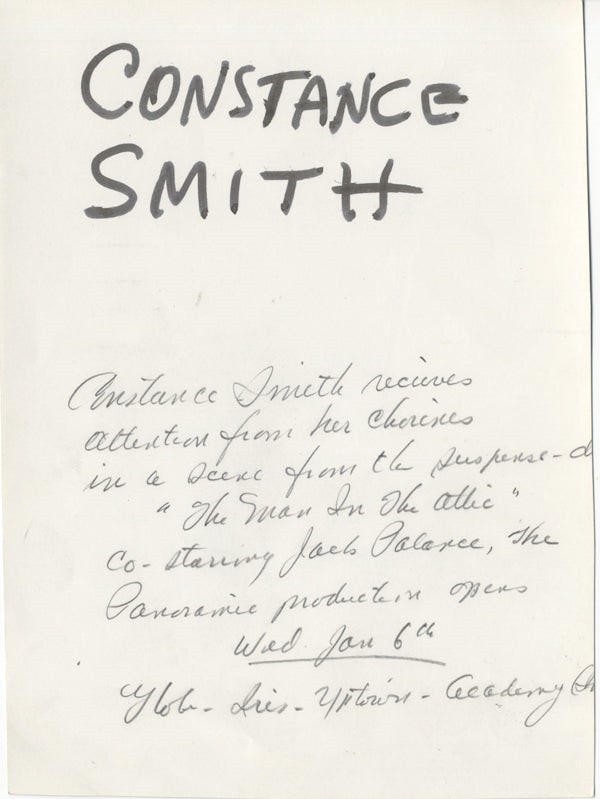 CONSTANCE
SMITH
Constance Smith recieves
attention from her chorines
in a scene from the suspense-d
" The Man In The Attic "
Co-starring Jack Palance, The
Panoramic production opens
Wed Jan 6th
Globe - Iris - Uptown - Academy